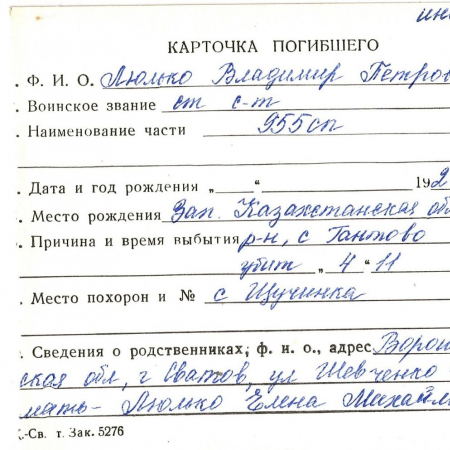 ин
КАРТОЧКА ПОГИБШЕГО
. Ф. И. О. Люлько Владимир Петров
. Воинское звание ст с-т
. Наименование части 955сп
. Дата и год рождения „ “ 192
. Место рождения Зап. Казахстанская обл
. Причина и время выбытия р-н, с Тантово
убит „ 4 “ 11
. Место похорон и № с Щучинка
. Сведения о родственниках, ф. и. о., адрес Ворош
ская обл, г Сватов, ул Шевченко
мать - Люлько Елена Михайл
.-Св. т. Зак. 5276